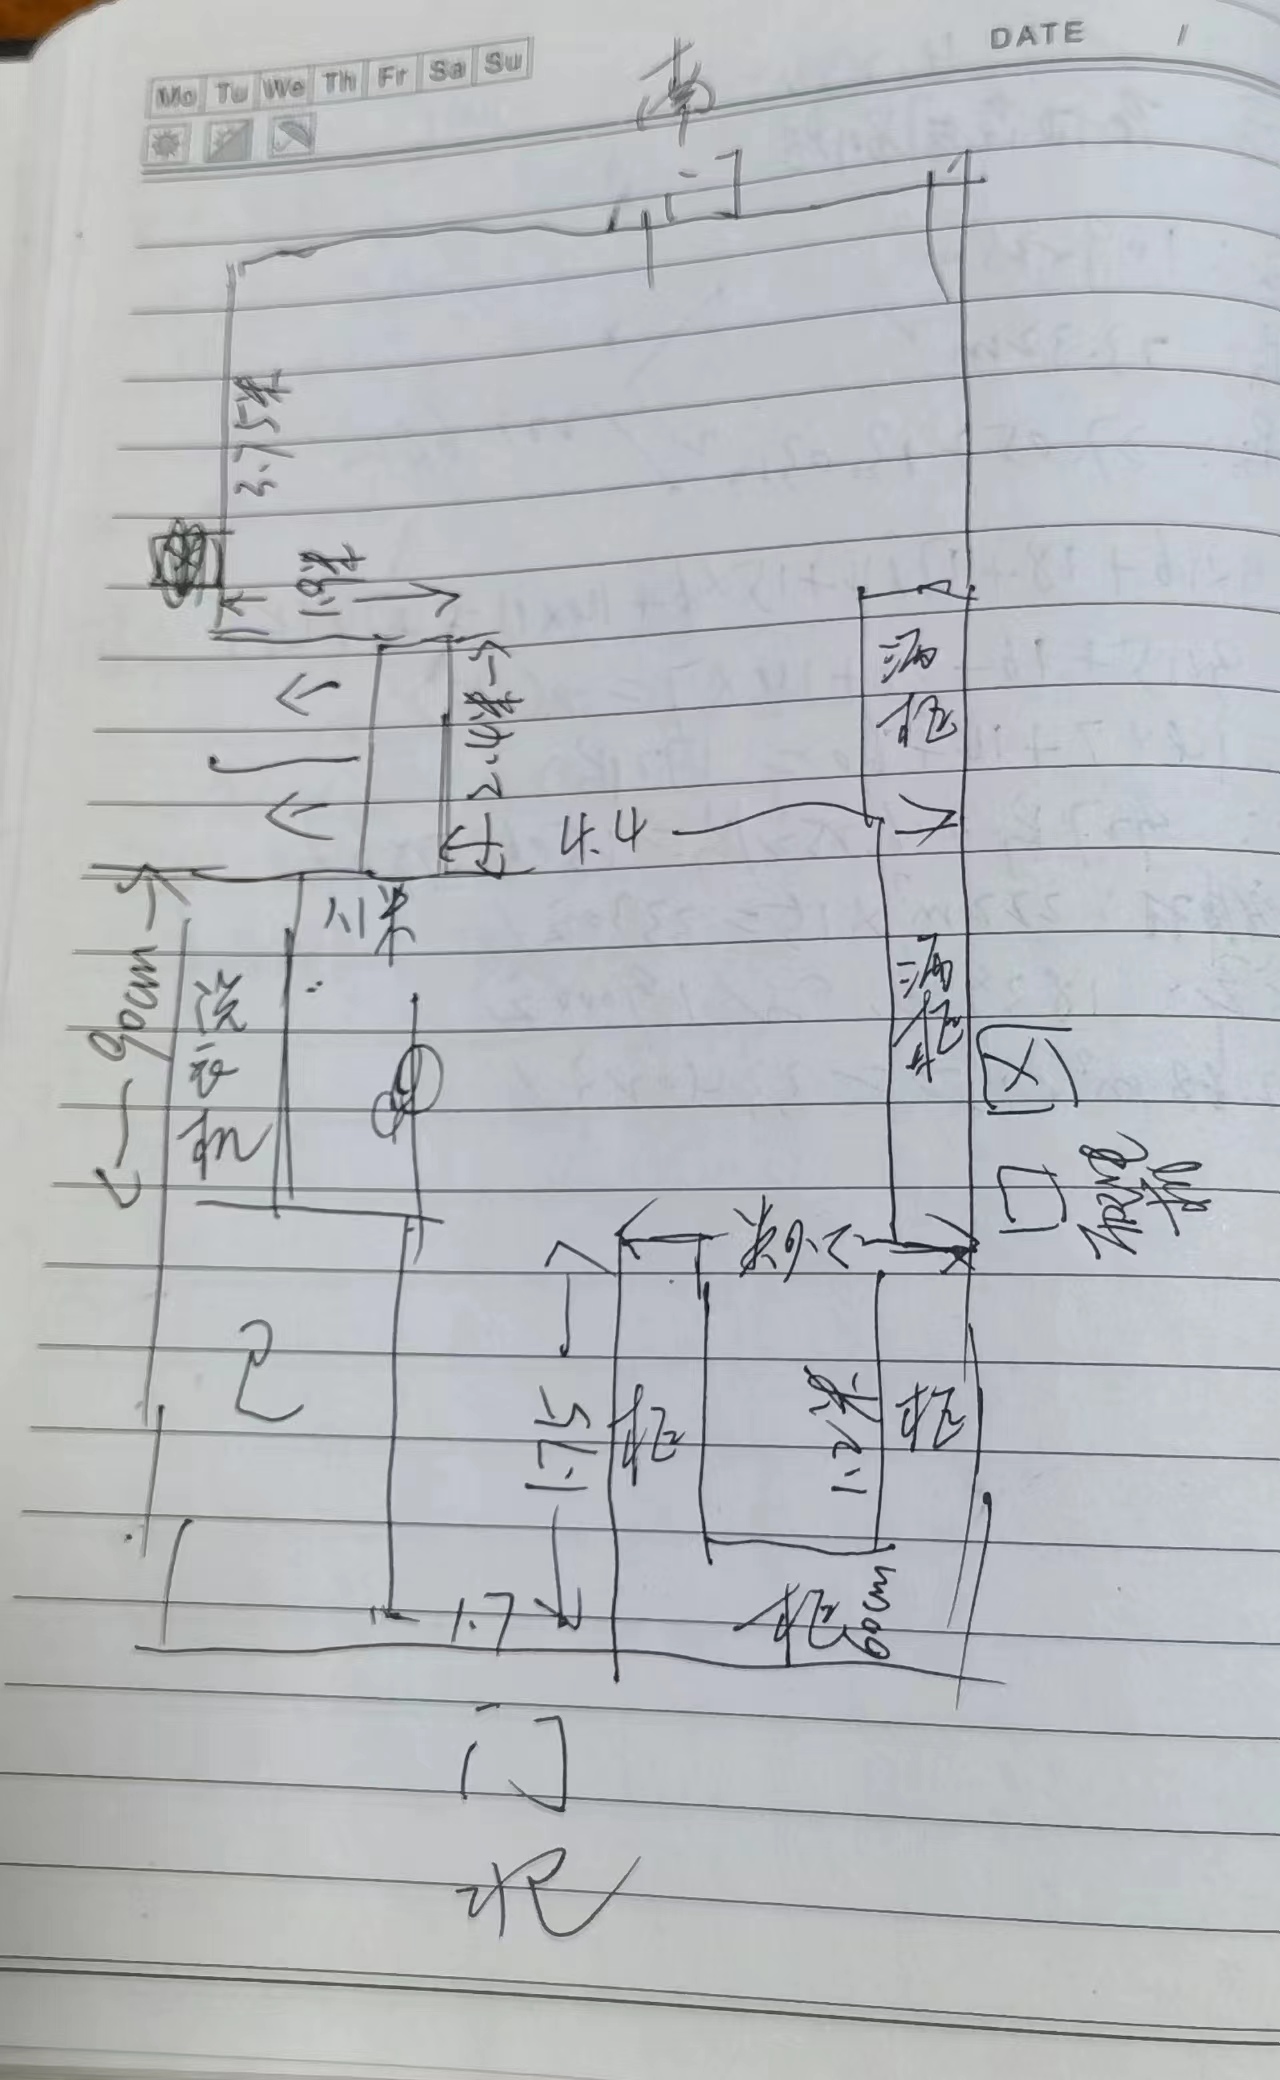 DATE
Mo Tu We Th Fr Sa Su
南
门
3.75米
1.9米
2.4米
酒柜
4.4
1.1米
酒柜
90cm
洗衣机
2.9米
1.75
柜
1.2米
柜
1.7
柜
60cm
门
北